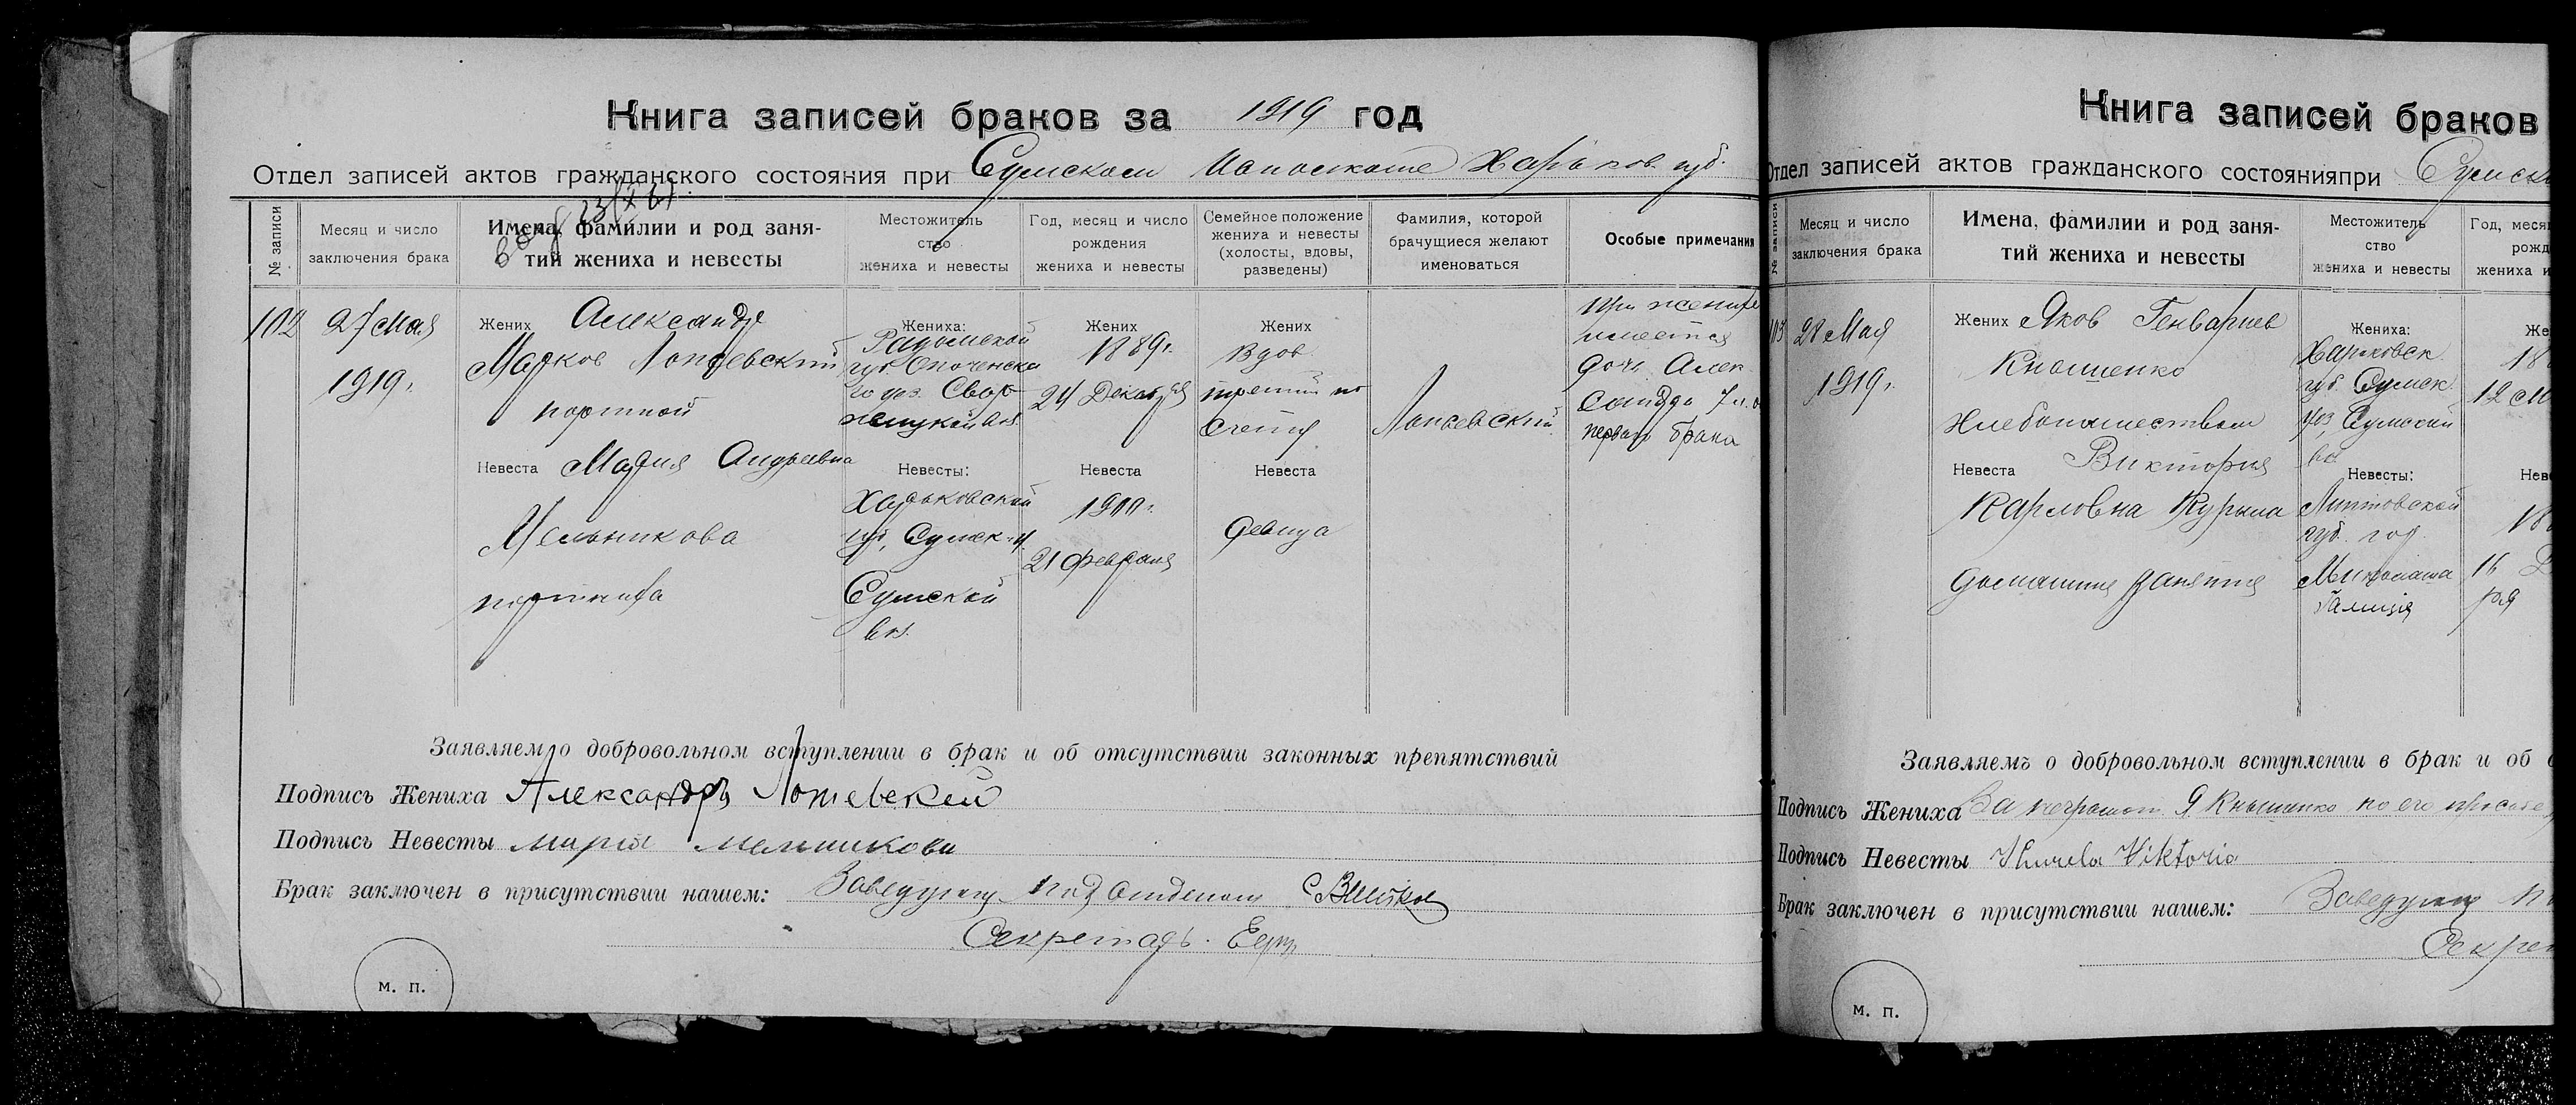 Книга записей браков за 1919 год
Отдел записей актов гражданского состояния при Сумском Исполкоме Харьков. губ.
№ записи
Месяц и число
заключения брака
Имена, фамилии и род заня-
тий жениха и невесты
Местожитель
ство
жениха и невесты
Год, месяц и число
рождения
жениха и невесты
Семейное положение
жениха и невесты
(холосты, вдовы,
разведены)
Фамилия, которой
брачущиеся желают
именоваться
Особые примечания
102
27 Мая
1919г.
Жених Александр
Марков Лопаевский
портной
Невеста Мария Андреевна
Мельникова
портниха
Жениха:
Радомской
губ. Опоченска
го уез.
вол.
Невесты:
Харьковской
губ., Сумск. у.
Сумской
вол.
Жених
1889г.
24 Декабря
Невеста
1900г.
21 февраля
Жених
Вдов
третий по
счету
Невеста
девица
Лопаевский
При женихе
имеется
дочь Алек
сандра 7 л. о
первого брака
Заявляем о добровольном вступлении в брак и об отсутствии законных препятствий
Подпись Жениха Александръ
Подпись Невесты Мария Мельникова
Брак заключен в присутствии нашем: Заведующ. Подотделом
Секретарь.
м. п.
Книга записей браков
Отдел записей актов гражданского состоянияпри Сумск
№ записи
Месяц и число
заключения брака
Имена, фамилии и род заня-
тий жениха и невесты
Местожитель
ство
жениха и невесты
Год, меся
рожд
жениха и
103
28 Мая
1919г.
Жених Яков Генвариев
Кнышенко
Хлебопашеством
Невеста Виктория
Карловна Курыла
домашния занятия
Жениха:
Харьковск.
губ. Сумск.
уез, Сумской
вол
Невесты:
губ. год.
Галиция
Же
18
12 М
Нев
18
16
ря
Заявляемъ о добровольном вступлении в брак и об о
Подпись Жениха За неграмотн. Я Кнышенко по его просьбе
Подпись Невесты Viktoria
Брак заключен в присутствии нашем: Заведующ П
Секрет
м. п.